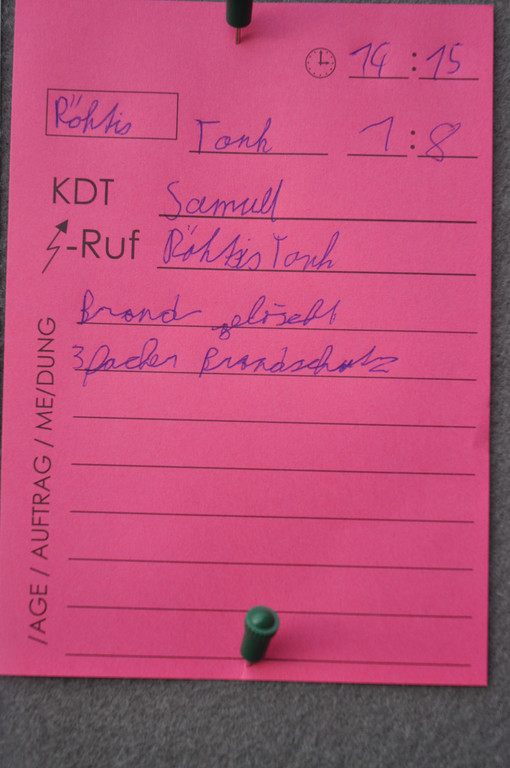 14:15
Röhtis Tank 1:8
KDT Samuel
-Ruf Röhtis Tank
Brand gelöscht
3facher Brandschutz
LAGE / AUFTRAG / MELDUNG